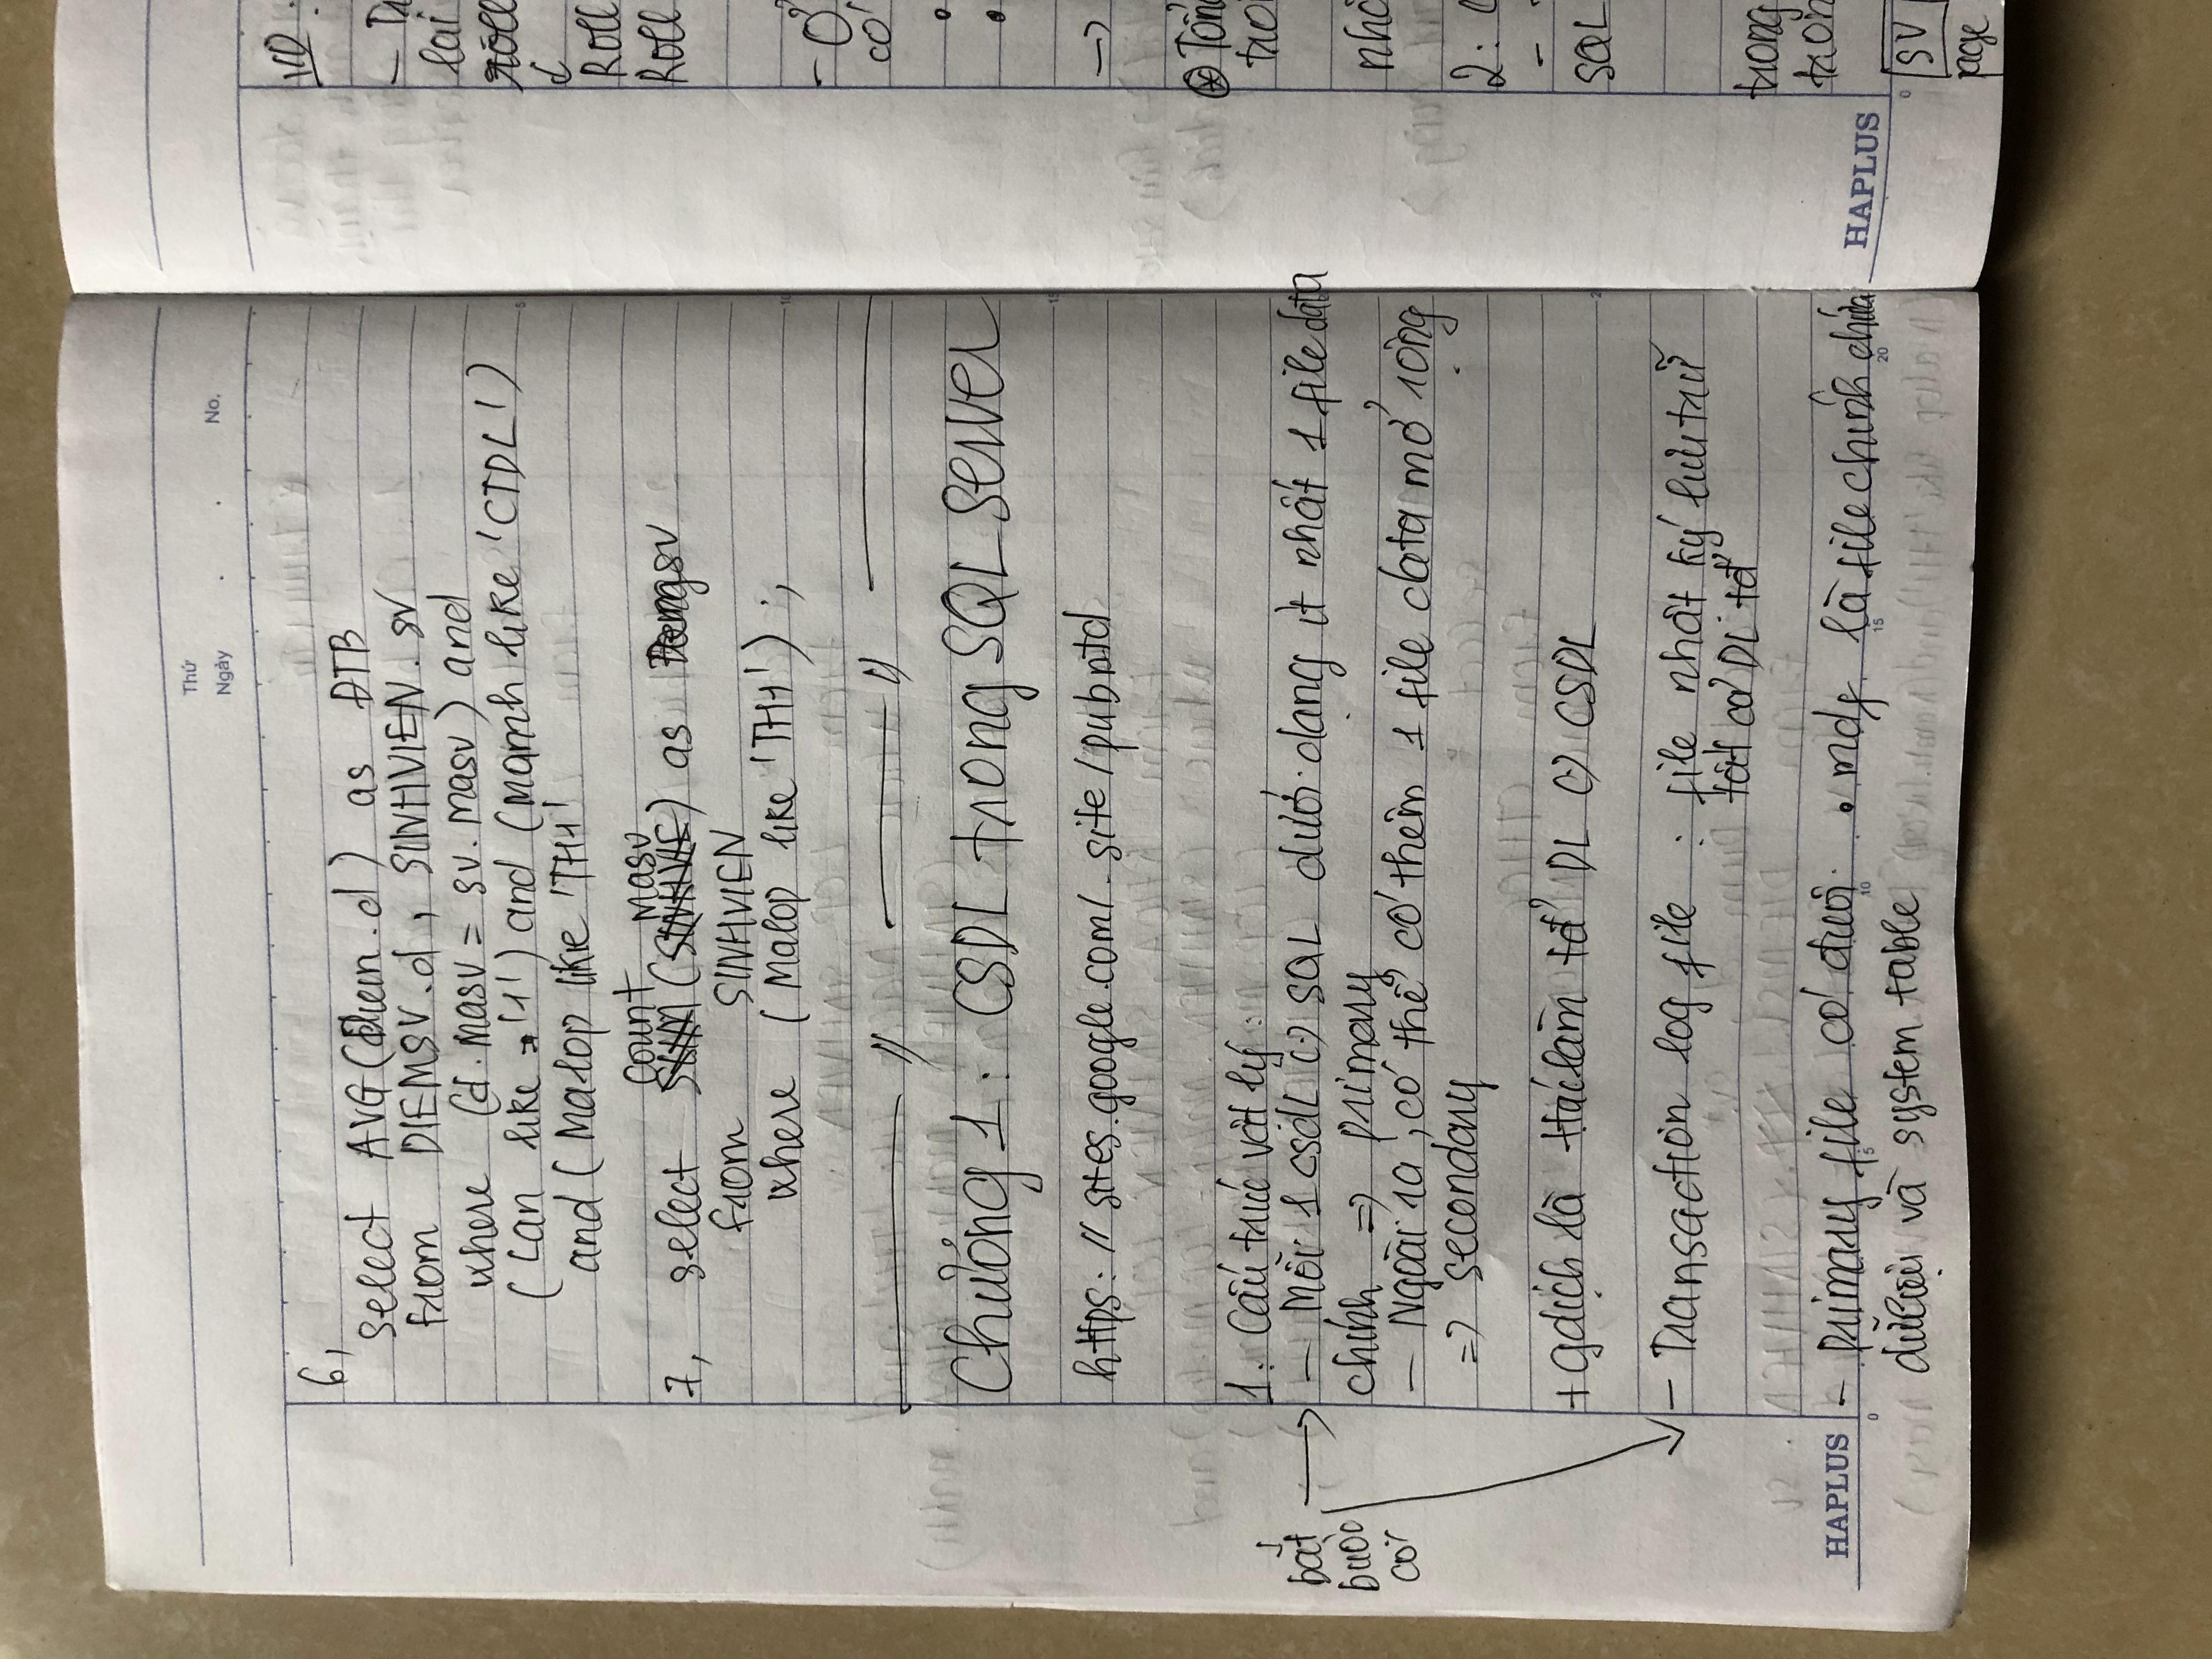 Thứ
Ngày . . No.
6,
select AVG(Diem.d) as ĐTB
from DIEMSV.d, SINHVIEN.sv
where (d.masv = sv.masv) and
(Lan like = '1') and (mamh like 'CTDL')
and (Malop like 'TH1'
count masv
7, select SUM (SINHVIE) as Tongsv
from SINHVIEN
where (Malop like 'TH1');
Chương 1: CSDL trong SQL Server
https://sites.google.com/.site/pubntd
1. Cấu trúc vật lý:
bắt buộc có
- Mỗi 1 csdl () SQL dưới dạng ít nhất 1 file data
chính => primary
- Ngoài ra, có thể có thêm 1 file data mở rộng
=> secondary
+ gdịch là làm tđ DL () CSDL
- Transaction log file : file nhật ký lưu trữ
tất cả DL tđ
- primary file có đuôi .mdf là file chính chứa
dữ liệu và system table
HAPLUS
0 5 10 15 20
VD:
lại
roll
Roll
Roll
- Ở
có
->
2:
SQL
trong
HAPLUS
0
SV
page